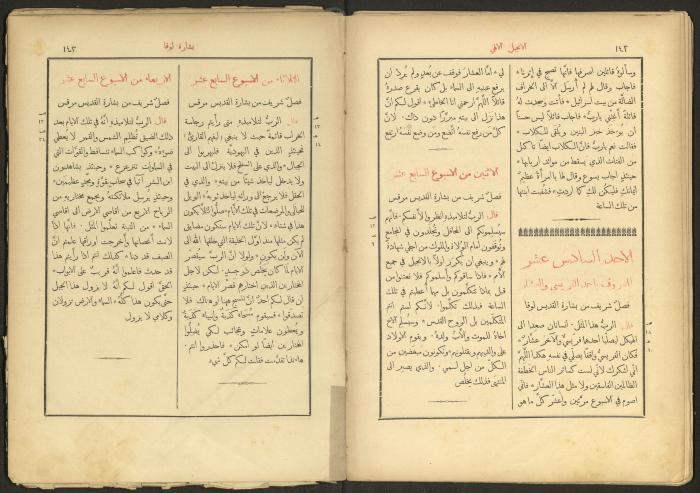 ١٤٢
الانجيل الالهي
وسألوهُ قائلين اصرفها فانَّها تصيح في إثرنا *
فاجاب وقال لهم لم أُرسَل الَّا الى الخراف
الضالَّة من بيت اسرائيل * فأتت وسجدت لهُ
قائلة أَغثني يا ربُّ * فاجاب قائلًا ليس حسنًا
أن يُؤخذ خبز البنين ويُلقى للكلاب *
فقالت نعم يا ربُّ فانَّ الكلاب ايضًا تأكل
من الفتات الذي يسقط من موائد اربابها *
حينئذٍ اجاب يسوع وقال لها يا امرأةُ عظيمٌ
ايمانكِ فليكن لكِ كما اردتِ * فشُفيت ابنتها
من تلك الساعة
الاحد السادس عشر
المعروف باحد الفريسي والعشار
فصلٌ شريف من بشارة القديس لوقا
قال الربُّ هذا المثل. انسانان صعدا الى
الهيكل ليصلِّيا احدهما فريسيٌّ والآخر عشَّارٌ *
فكان الفريسيُّ واقفًا يصلِّي في نفسهِ هكذا اللهمَّ
اني اشكرك لأني لست كسائر الناس الخطفة
الظالمين الفاسقين ولا مثل هذا العشَّار * فاني
اصوم في الاسبوع مرَّتين وأُعشِّر كلَّ ما هو
لي * امَّا العشَّار فوقف عن بُعدٍ ولم يُرِد أن
يرفع عينيهِ الى السماء بل كان يقرع صدرهُ
قائلًا اللهمَّ ارحمني انا الخاطئ * اقول لكم انَّ
هذا نزل الى بيتهِ مبرَّرًا دون ذاك. لأنَّ
كلَّ من رفع نفسهُ اتَّضع ومن وضع نفسهُ ارتفع
الاثنين من الاسبوع السابع عشر
فصلٌ شريف من بشارة القديس مرقس
قال الربُّ لتلاميذهِ انظروا لأنفسكم. فانَّهم
سيُسلمونكم الى المحافل وتُجلدون في المجامع
وتوقفون أمام الولاة والملوك من اجلي شهادةً
لهم * وينبغي ان يُكرز اولًا بالانجيل في جميع
الامم * فاذا ساقوكم وأسلموكم فلا تعتنوا من
قبل بماذا تتكلَّمون بل مهما أُعطيتم في تلك
الساعة فبذلك تكلَّموا. لأنَّكم لستم انتم
المتكلِّمين بل الروح القدس * وسيُسلم الأخ
اخاهُ للموت والأبُ ولدهُ. ويقوم الاولاد
على والديهم ويقتلونهم * وتكونون مبغضين من
الكلِّ من اجل اسمي. والذي يصبر الى
المنتهى فذلك يخلُص
بشارة لوقا
١٤٣
الثلاثاء من الاسبوع السابع عشر
فصلٌ شريف من بشارة القديس مرقس
قال الربُّ لتلاميذهِ متى رأيتم رجاسة
الخراب قائمةً حيث لا ينبغي (ليفهم القارئ)
فحينئذٍ الذين في اليهوديَّة فليهربوا الى
الجبال * والذي على السطح فلا ينزل الى البيت
ولا يدخل ليأخذ شيئًا من بيتهِ * والذي في
الحقل فلا يرجع الى ورائهِ ليأخذ ثوبهُ * الويل
للحبالى والمرضعات في تلك الايَّام * صلُّوا لئلَّا يكون
هذا في شتاء * لأنَّ تلك الايَّام ستكون مضايق
لم يكن مثلها منذ اوَّل الخليقة التي خلقها الله الى
الآن ولن يكون * ولولا أنَّ الربَّ سيُقصِّر
الايَّام لما كان يخلُص ذو جسدٍ. لكن لاجل
المختارين الذين اختارهم قصَّر الايَّام * حينئذٍ
ان قال لكم احدٌ انَّ المسيح ههنا او هناك. فلا
تصدِّقوا * فسيقوم مُسحاءُ كذَبة وانبياءُ كذبة
ويُعطون علامات وعجائب لكي يُضِلُّوا
المختارين ايضًا لو امكن * فاحذروا انتم.
هاءَنذا تقدَّمت فقلت لكم كلَّ شيء
الاربعاء من الاسبوع السابع عشر
فصلٌ شريف من بشارة القديس مرقس
قال الربُّ لتلاميذهِ إنَّهُ في تلك الايَّام بعد
ذلك الضيق تُظلم الشمس والقمر لا يُعطي
ضوءَهُ * وكواكب السماء تتساقط والقوَّات التي
في السماوات تتزعزع * وحينئذٍ يشاهدون
ابن البشر آتيًا في سحاب بقوَّةٍ ومجدٍ عظيمين *
وحينئذٍ يُرسل ملائكتهُ ويجمع مختاريهِ من
الرياح الاربع من اقاصي الارض الى اقاصي
السماء * من التينة تعلَّموا المثل. فانَّها اذا
لانت أغصانها وأخرجت اوراقها علمتم أنَّ
الصيف قد دنا * كذلك انتم اذا رأيتم هذا
قد حدث فاعلموا أنَّهُ قريبٌ على الابواب *
الحقَّ اقول لكم انَّهُ لا يزول هذا الجيل
حتَّى يكون هذا كلُّهُ * السماء والارض تزولان
وكلامي لا يزول